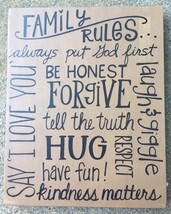 FAMILY
RULES...
always put God first
BE HONEST
FORGIVE
tell the truth
HUG
have fun!
kindness matters
SAY "I LOVE YOU"
laugh & giggle
RESPECT